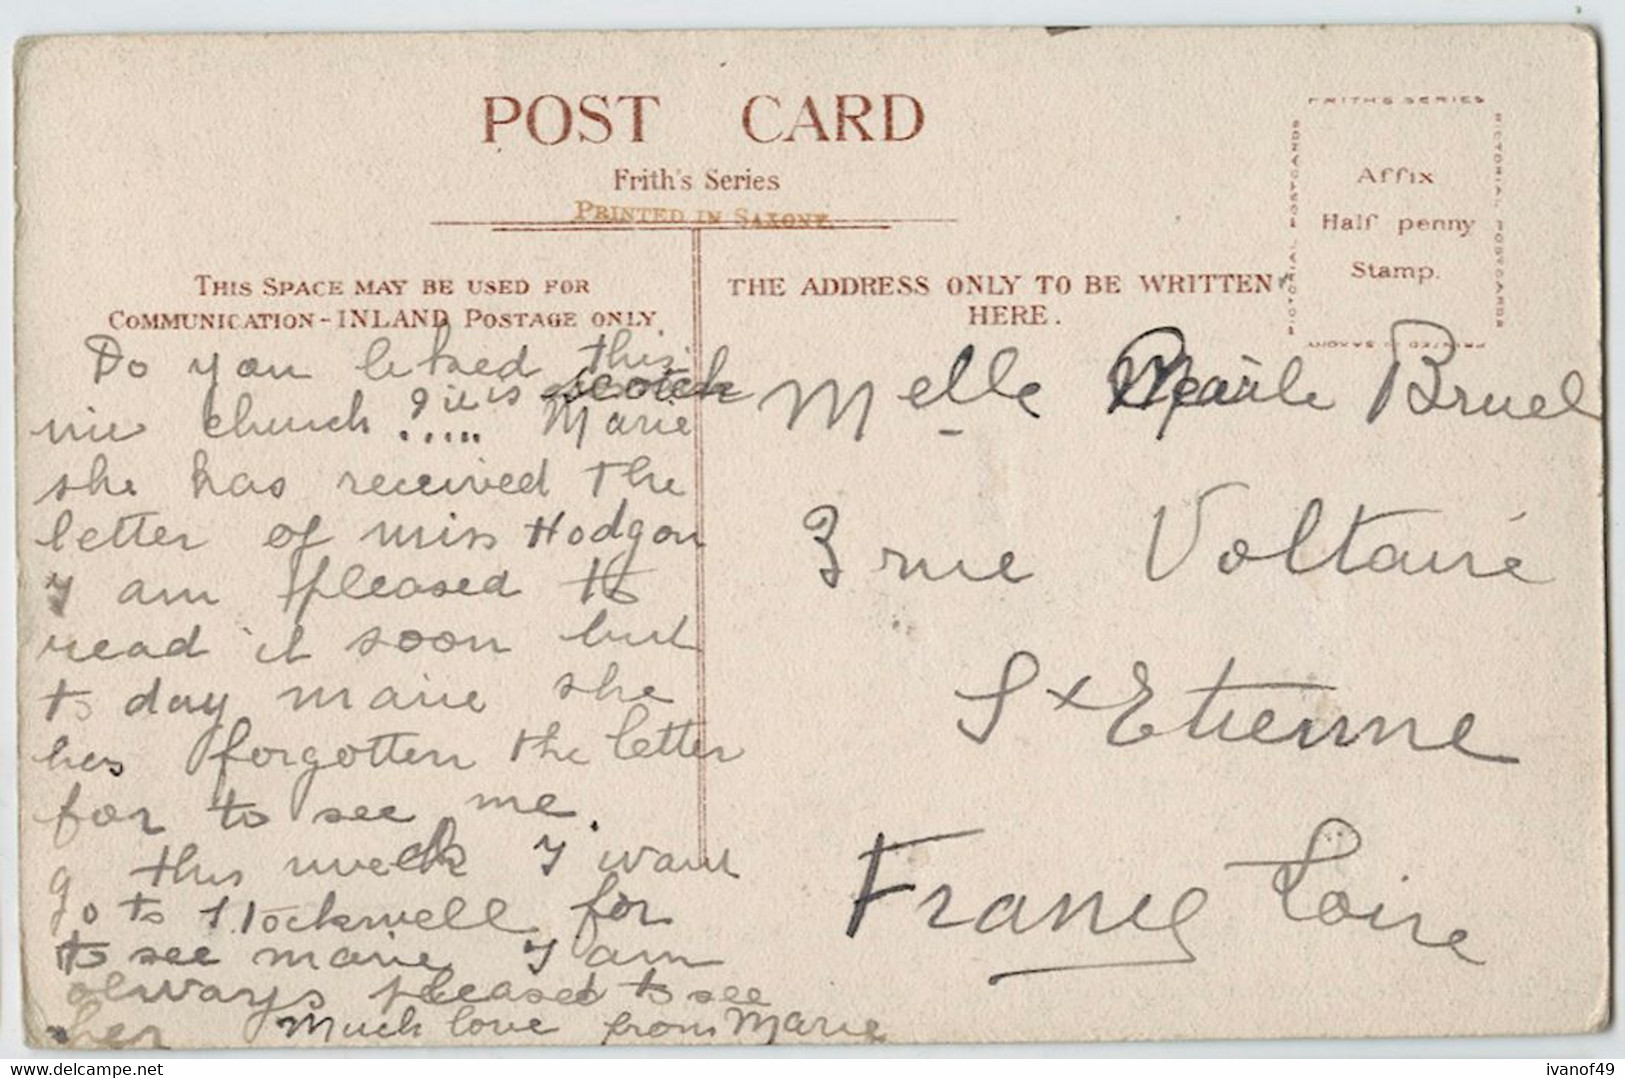 POST CARD
Frith's Series
PRINTED IN SAXONY.
THIS SPACE MAY BE USED FOR
COMMUNICATION - INLAND POSTAGE ONLY.
Do you liked this
nice church ? it is scotch
..... Marie
she has received the
letter of miss Hodgon
I am pleased to
read it soon but
to day marie she
has forgotten the letter
for to see me.
this week I want
go to Stockwell for
to see marie I am
always pleased to see
her Much love from Marie
THE ADDRESS ONLY TO BE WRITTEN
HERE.
Melle Bruel
3 rue Voltaire
St Etienne
France Loire
FRITH'S SERIES
PICTORIAL POSTCARDS
Affix
Half penny
Stamp.
PICTORIAL POSTCARDS
PRINTED IN SAXONY
delcampe.net
ivanof49